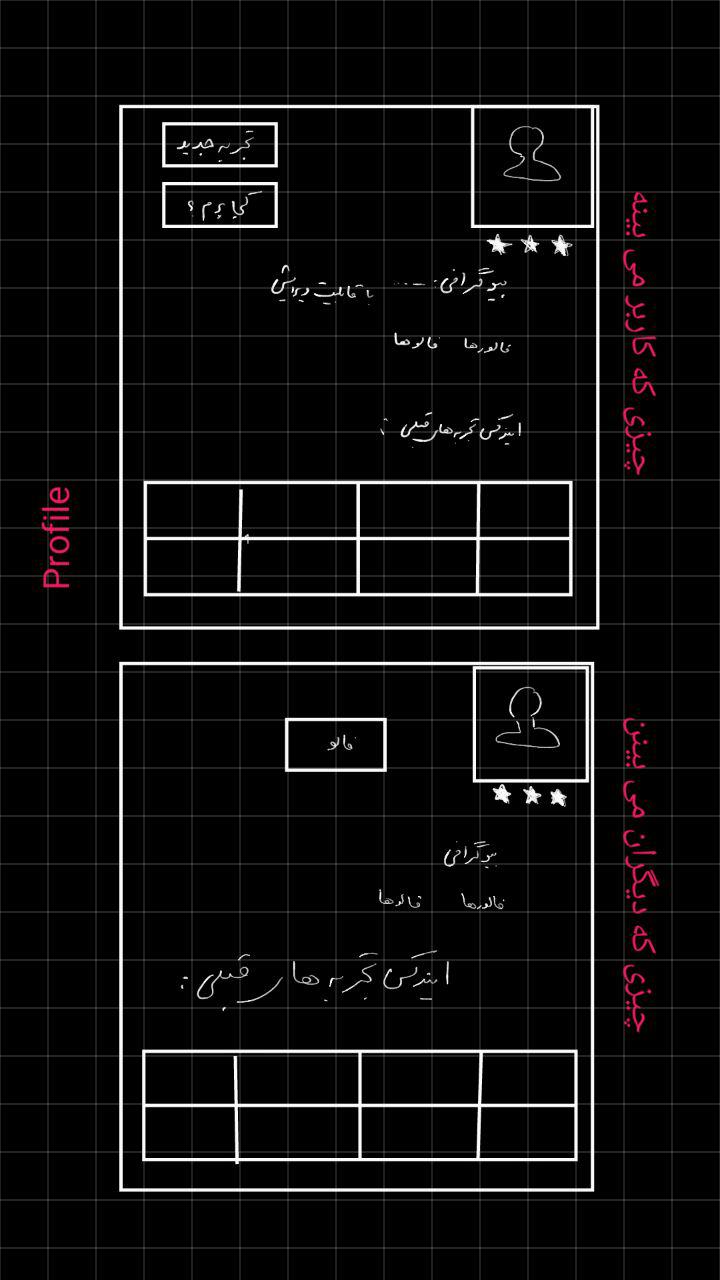 Profile
چیزی که کاربر می بینه
تجربه جدید
کجا برم ؟
بیوگرافی: .... با قابلیت ویرایش
فالورها فالوها
ایندکس تجربه های قبلی :
چیزی که دیگران می بینن
فالو
بیوگرافی
فالورها فالوها
ایندکس تجربه های قبلی :